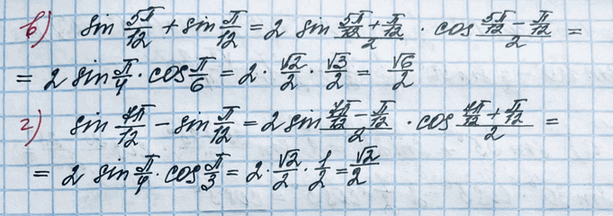 в) sin 5π/12 + sin π/12 = 2 sin (5π/12 + π/12)/2 · cos (5π/12 − π/12)/2 =
= 2 sin π/4 · cos π/6 = 2 · √2/2 · √3/2 = √6/2
г) sin 7π/12 − sin π/12 = 2 sin (7π/12 − π/12)/2 · cos (7π/12 + π/12)/2 =
= 2 sin π/4 · cos π/3 = 2 · √2/2 · 1/2 = √2/2